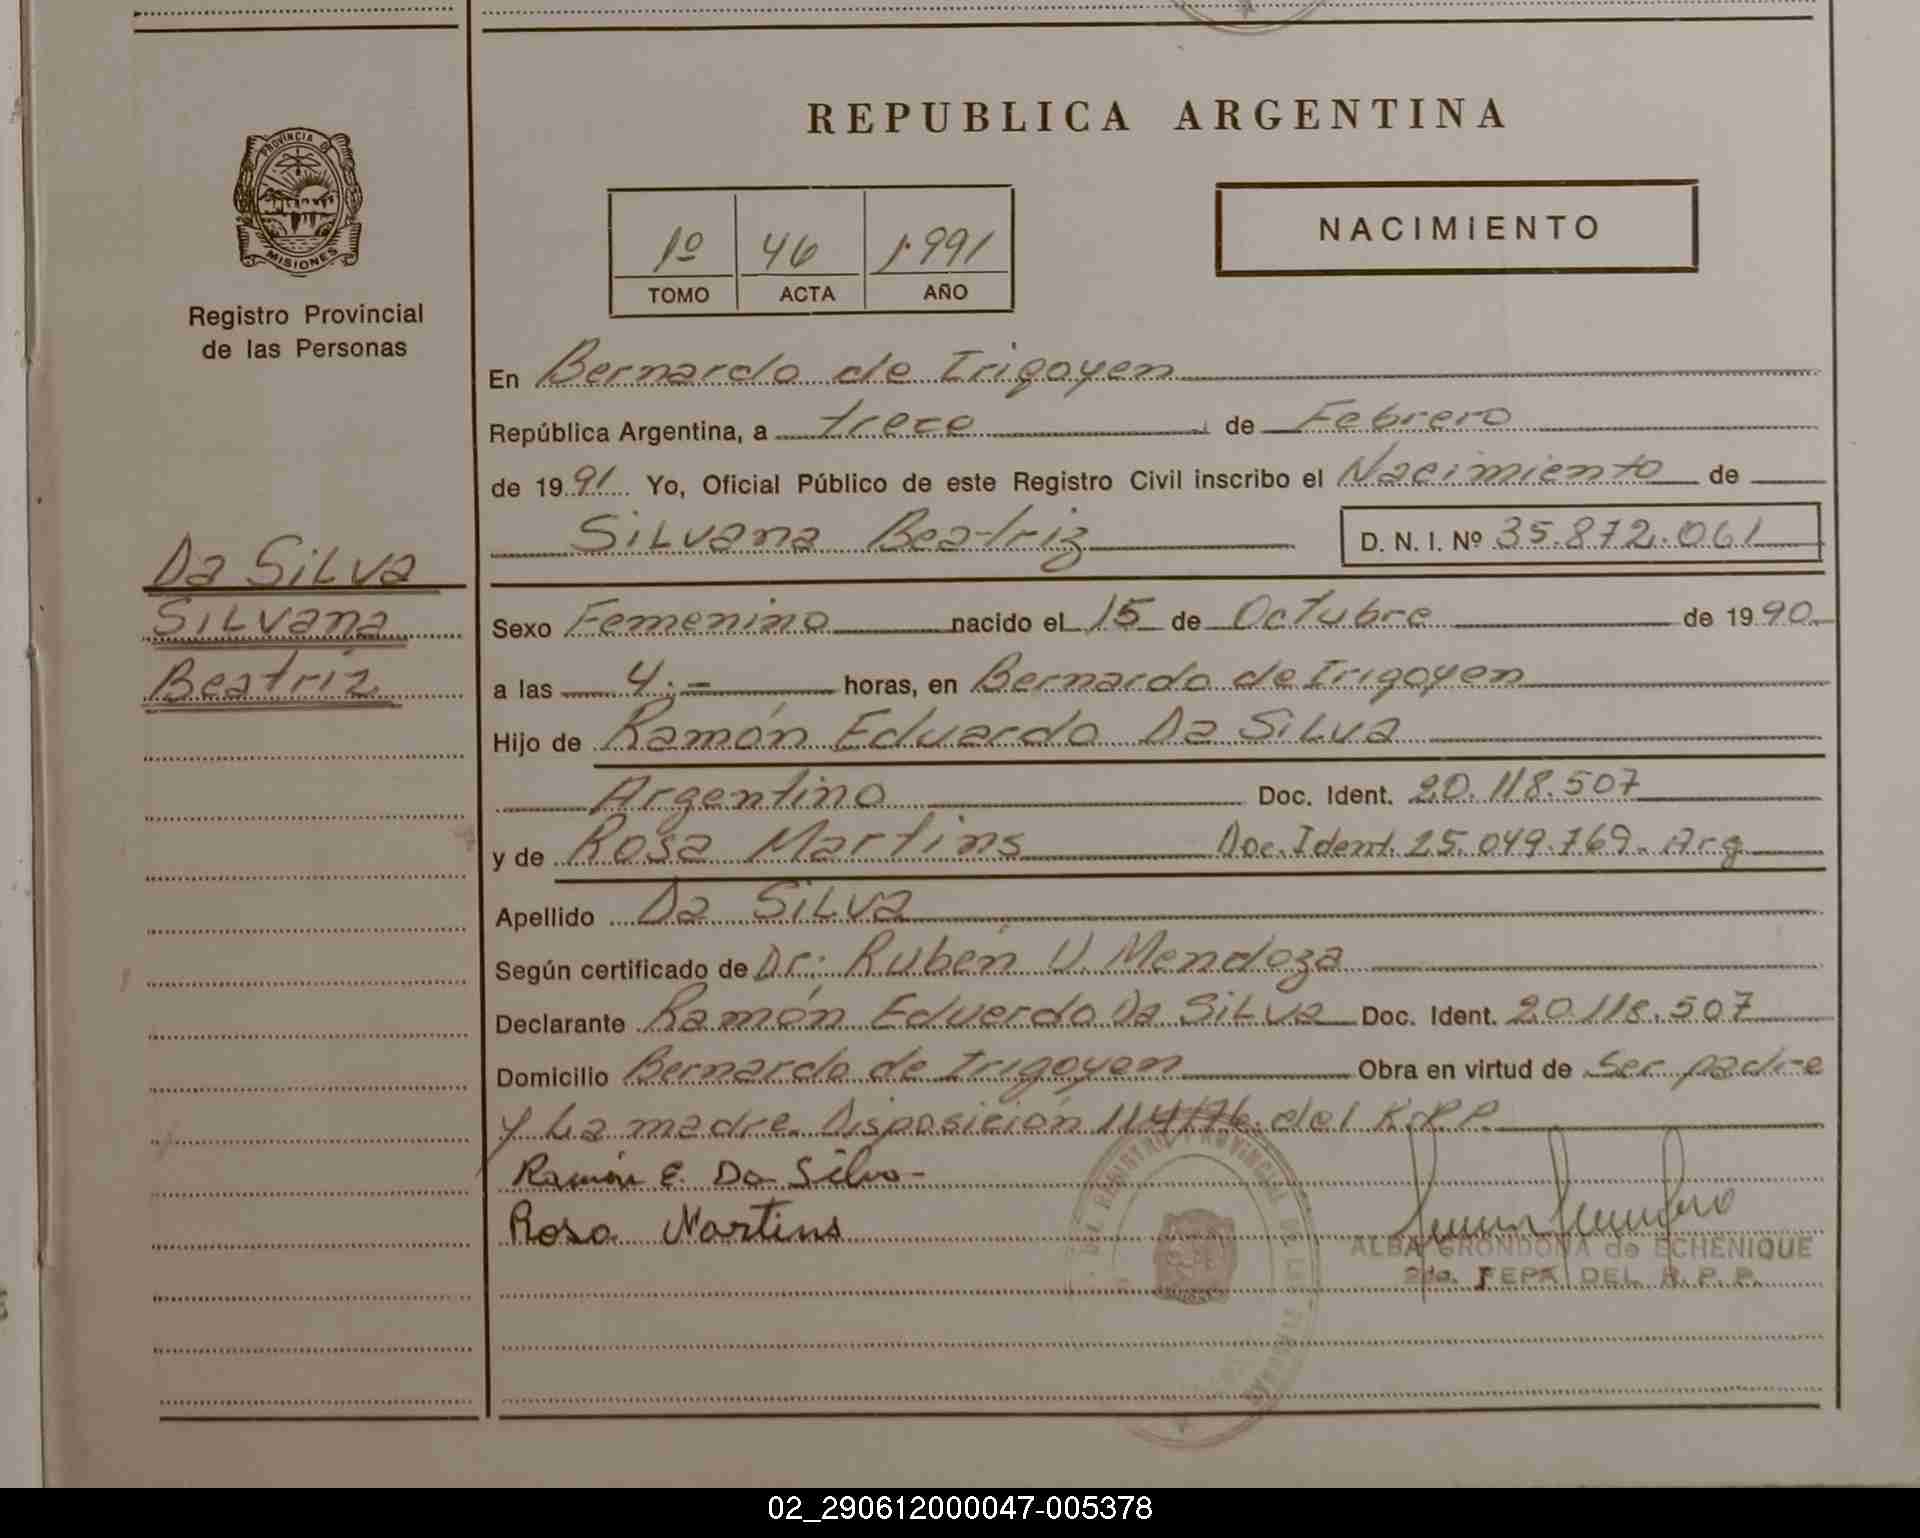 REPUBLICA ARGENTINA
PROVINCIA DE
MISIONES
Registro Provincial
de las Personas
1º 46 1.991
TOMO ACTA AÑO
NACIMIENTO
En Bernardo de Irigoyen
República Argentina, a trece de Febrero
de 1991 Yo, Oficial Público de este Registro Civil inscribo el Nacimiento de
Silvana Beatriz D. N. I. Nº 35.872.061
Da Silva
Silvana
Beatríz
Sexo Femenino nacido el 15 de Octubre de 1990
a las 4.- horas, en Bernardo de Irigoyen
Hijo de Ramón Eduardo Da Silva
Argentino Doc. Ident. 20.118.507
y de Rosa Martins Doc. Ident. 25.049.769. Arg
Apellido Da Silva
Según certificado de Dr: Rubén V. Mendoza
Declarante Ramón Eduardo Da Silva Doc. Ident. 20.118.507
Domicilio Bernardo de Irigoyen Obra en virtud de Ser padre
y La madre. Disposición 114/76 del R.P.P.
Ramón E. Da Silva-
Rosa Martins
ALBA GRONDONA de ECHENIQUE
2da. JEFA DEL R. P. P.
02_290612000047-005378